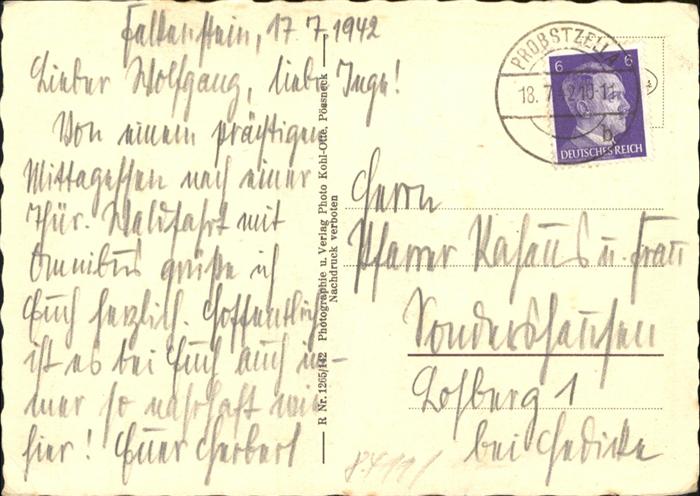 Falkenstein, 17. 7. 1942
Lieber Wolfgang, liebe Inge!
Von einem prächtigen
Mittagessen nach einer
Thür. Waldfahrt mit
Omnibus grüße ich
Euch herzlich. Hoffentlich
ist es bei Euch auch im-
mer so nahrhaft wie
hier! Euer Herbert
R Nr. 1265/142 Photographie u. Verlag Photo Kohl-Otte, Pössneck
Nachdruck verboten
PROBSTZELLA
18. 7. 42 10-11
b
6 6
DEUTSCHES REICH
Herrn
Pfarrer Kasaus u. Frau
Sondershausen
Lohberg 1
bei Gedicke